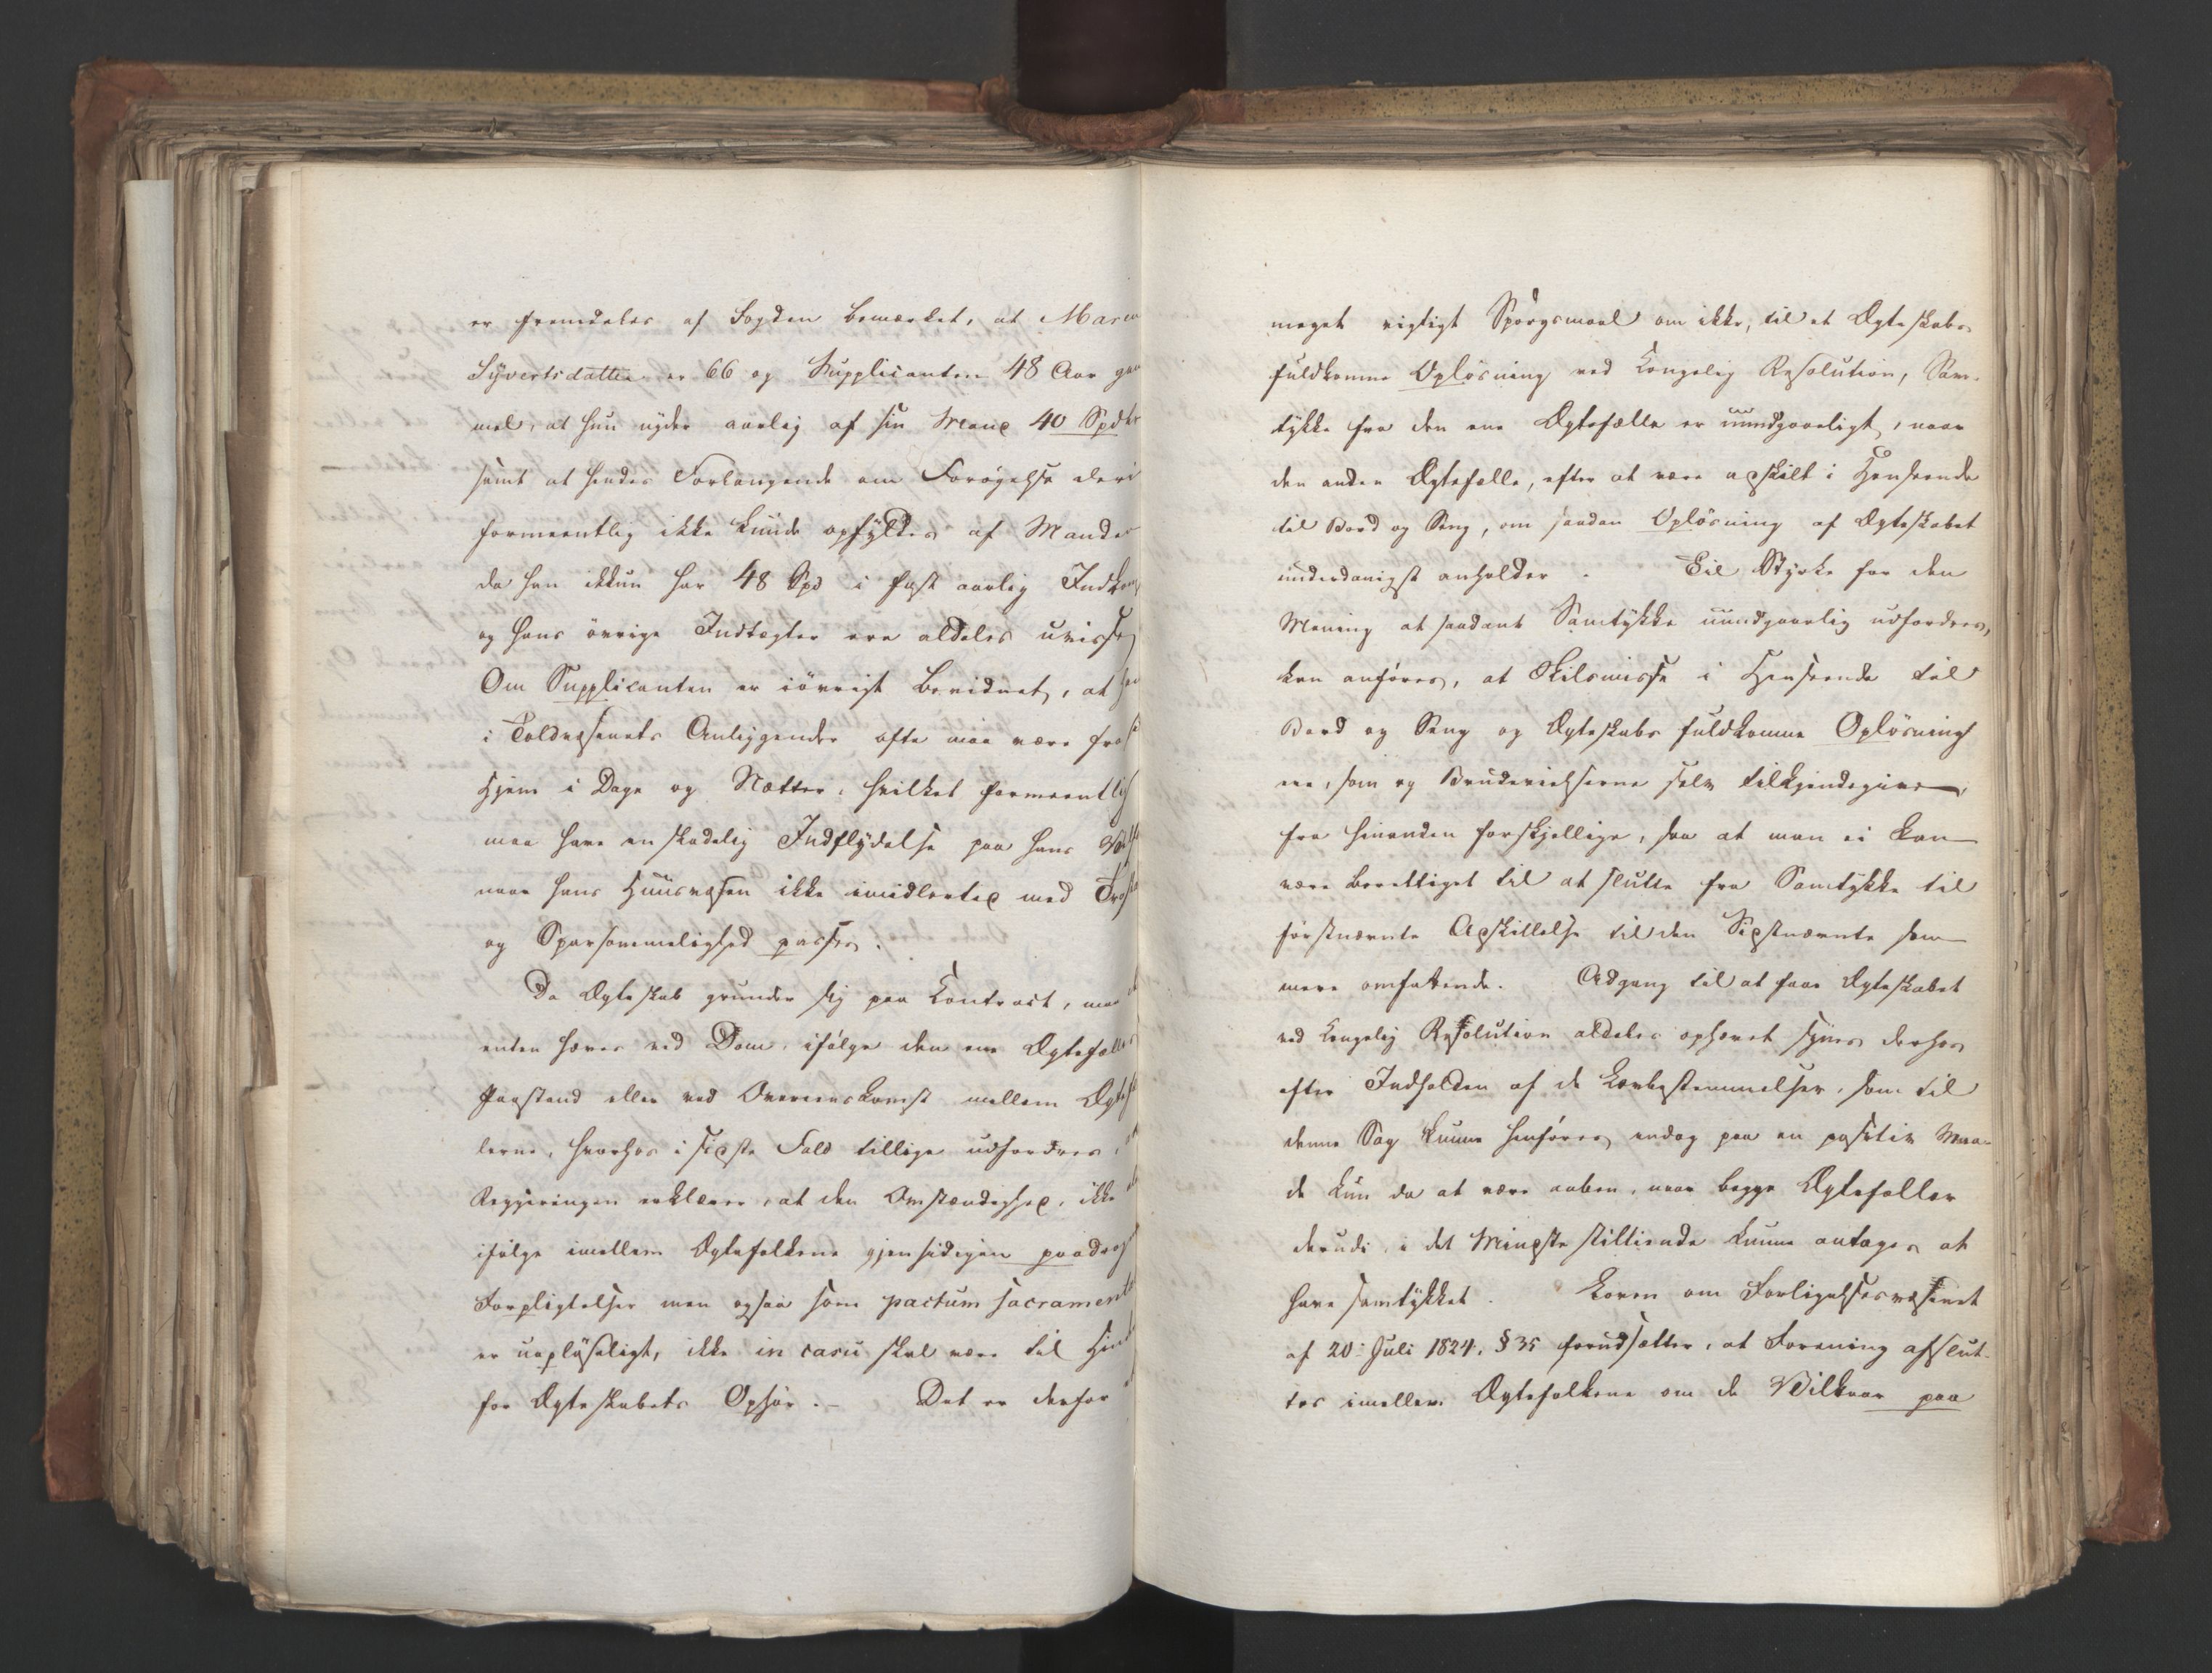 er fremdeles af Fogden bemærket, at Maren
Syvertsdatter er 66 og Supplicanten 48 Aar gam
mel, at hun nyder aarlig af sin Mand 40 Spdlr
samt at hendes Forlangende om Forøgelse deri
formeentlig ikke kunde opfyldes af Manden
da han ikkun har 48 Spd i fast aarlig Indkom
og hans øvrige Indtægter ere aldeles uvisse,
Om Supplicanten er iøvrigt bevidnet, at han
i Toldvæsenets Anliggender ofte maa være fra sit
Hjem i Dage og Nætter, hvilket formeentlig
maa have en skadelig Indflydelse paa hans
naar hans Huusvæsen ikke imidlertid med
og Sparsommelighed passes.
Da Ægteskab grunder sig paa Contract, maa det
enten hæves ved Dom, ifølge den ene Ægtefælles
Paastand eller ved Overeenskomst mellem Ægtefæl
lerne, hvorhos i sidste Fald tillige udfordres, at
Regjeringen erklærer, at den Omstændighed, ikke
ifølge imellem Ægtefolkene gjensidigen paadragne
Forpligtelser men ogsaa som pactum sacramento
er uopløseligt, ikke in casu skal være til Hinder
for Ægteskabets Ophør. – Det er derfor et
meget vigtigt Spørgsmaal om ikke, til et Ægteskabs
fuldkomne Opløsning ved Kongelig Resolution, Sam-
tykke fra den ene Ægtefælle er uundgaaeligt, naar
den anden Ægtefælle, efter at være adskilt i Henseende
til Bord og Seng, om saadan Opløsning af Ægteskabet
underdanigst anholder. Til Styrke for den
Mening at saadant Samtykke uundgaaelig udfordres,
kan anføres, at Skilsmisse i Henseende til
Bord og Seng og Ægteskabs fuldkomne Opløsning
ere, som og Benævnelserne selv tilkjendegive,
fra hinanden forskjellige, saa at man ei kan
være berettiget til at slutte fra Samtykke til
førstnævnte Adskillelse til den Sidstnævnte som
mere omfattende. Adgang til at faae Ægteskabet
ved Kongelig Resolution aldeles ophævet synes derhos
efter Indholden af de Lovbestemmelser, som til
denne Sag kunne henføres endog paa en positiv Maa-
de kun da at være aaben, naar begge Ægtefæller
derudi, i det Mindste stiltiende kunne antages at
have samtykket. Loven om Forligelsesvæsenet
af 20: Juli 1824, § 35 forudsætter, at Forening afslut-
tes imellem Ægtefolkene om de Vilkaar paa